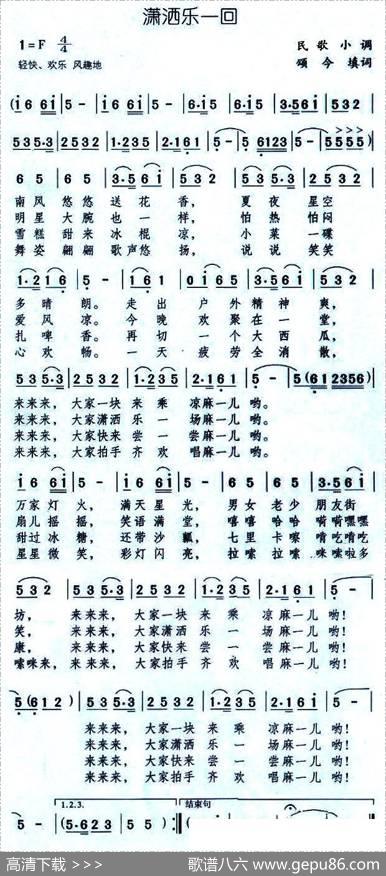 潇洒乐一回
1=F 4/4
民歌小调
轻快、欢乐 风趣地
颂今填词
(i6 6i | 5 - | i6 6i | 5 - | 6·i5 | 6·i5 | 3·56i | 532
535·3 | 2532 | 1·235 | 2·161 | 5 - | 5 6123 | 5 - | 5555)
65 65 | 3·56i | 532 | 535·3 | 2532
南风悠悠送花香, 夏夜星空
明星大腕也一样, 怕热怕闷
雪糕甜来冰棍凉, 小菜一碟
舞姿翩翩歌声悠扬, 说说笑笑
1·216 | 5 - | 161 | 0165 | 3·561 | 532
多晴朗。走出户外精神爽,
爱风凉。今晚欢聚在一堂,
扎啤香。再切一个大西瓜,
心欢畅。一天疲劳全消散,
535·3 | 2532 | 1·235 | 2·161 | 5 - | 5(612356)
来来来, 大家一块来乘凉麻一儿哟。
来来来, 大家潇洒乐一场麻一儿哟。
来来来, 大家快来尝一尝麻一儿哟。
来来来, 大家拍手齐欢唱麻一儿哟。
i6 6i | 5 - | i6 6i | 5 - | 65 65 | 65 65 | 3·56i
万家灯火, 满天星光, 男女老少朋友街
扇儿摇摇, 笑语满堂, 嘻嘻哈哈嗬嗬嘿嘿
甜过冰糖, 还带沙瓤, 七里卡嚓啃吃啃吃
星星微笑, 彩灯闪亮, 拉嗦拉嗦咪嗦啦多
532 | 535·3 | 2532 | 1·235 | 2·161
坊, 来来来, 大家一块来乘凉麻一儿哟!
笑, 来来来, 大家潇洒乐一场麻一儿哟!
康, 来来来, 大家快来尝一尝麻一儿哟!
嗦咪来, 来来来, 大家拍手齐欢唱麻一儿哟!
5(612) | 535·3 | 2532 | 1·235 | 2·16i | 5 -
来来来, 大家一块来乘凉麻一儿哟!
来来来, 大家潇洒乐一场麻一儿哟!
来来来, 大家快来尝一尝麻一儿哟!
来来来, 大家拍手齐欢唱麻一儿哟!
1.2.3. 结束句
5 - | (5·623 | 55) :‖
高清下载 >>>
歌谱八六 www.gepu86.com